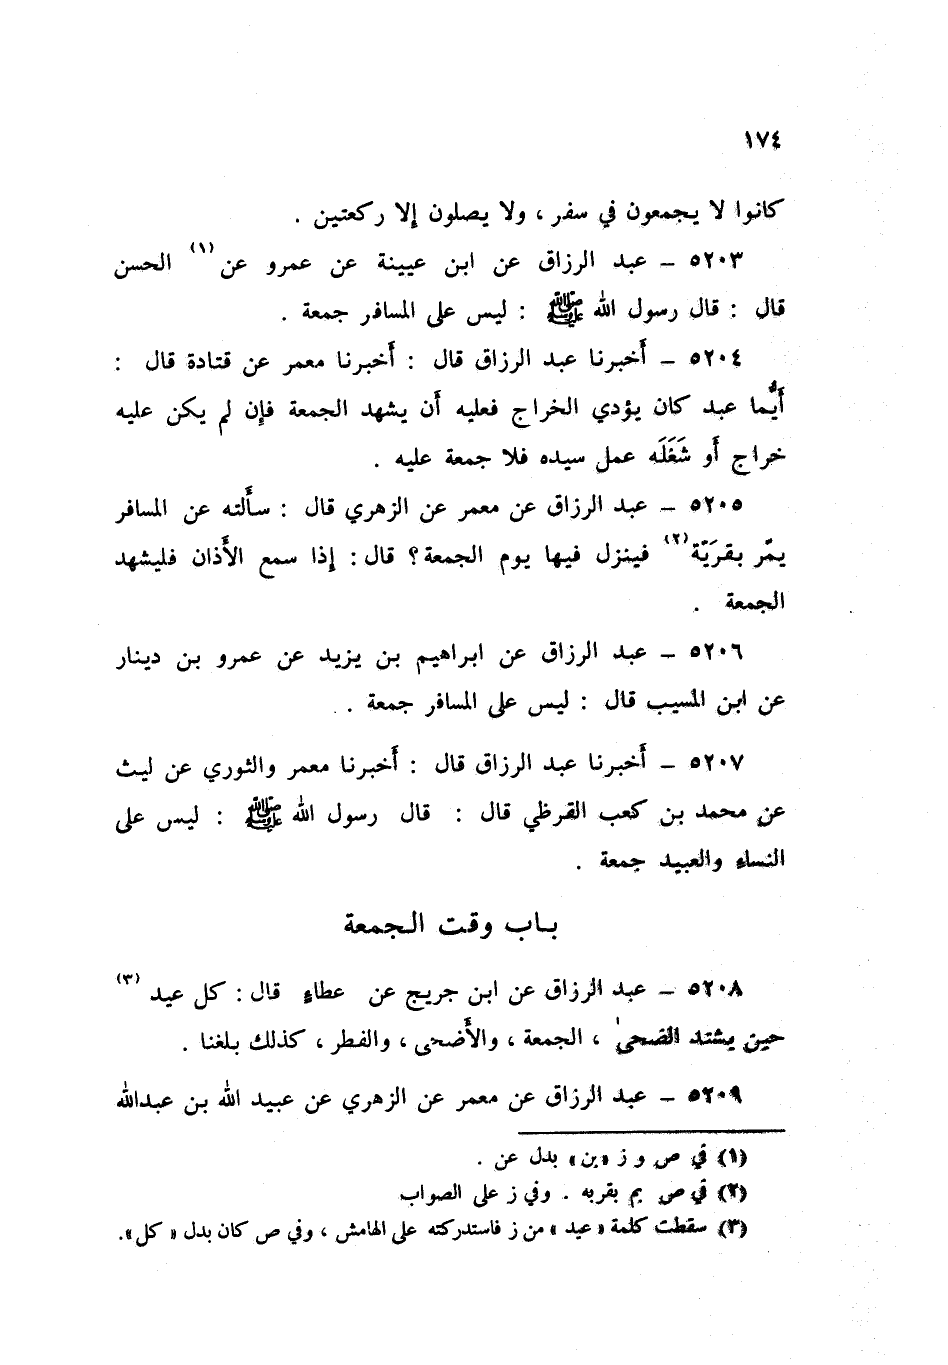 ١٧٤
كانوا لا يجمعون في سفر ، ولا يصلون إلا ركعتين .
٥٢٠٣ – عبد الرزاق عن ابن عيينة عن عمرو عن (١) الحسن
قال : قال رسول الله ﷺ : ليس على المسافر جمعة .
٥٢٠٤ – أخبرنا عبد الرزاق قال : أخبرنا معمر عن قتادة قال :
أيُّما عبد كان يؤدي الخراج فعليه أن يشهد الجمعة فإن لم يكن عليه
خراج أو شَغَلَه عمل سيده فلا جمعة عليه .
٥٢٠٥ – عبد الرزاق عن معمر عن الزهري قال : سألته عن المسافر
يمّر بقريَّة (٢) فينزل فيها يوم الجمعة ؟ قال : إذا سمع الأذان فليشهد
الجمعة .
٥٢٠٦ – عبد الرزاق عن ابراهيم بن يزيد عن عمرو بن دينار
عن ابن المسيب قال : ليس على المسافر جمعة .
٥٢٠٧ – أخبرنا عبد الرزاق قال : أخبرنا معمر والثوري عن ليث
عن محمد بن كعب القرظي قال : قال رسول الله ﷺ : ليس على
النساء والعبيد جمعة .
باب وقت الجمعة
٥٢٠٨ – عبد الرزاق عن ابن جريج عن عطاء قال : كل عيد (٣)
حين يشتد الضحى ، الجمعة ، والأضحى ، والفطر ، كذلك بلغنا .
٥٢٠٩ – عبد الرزاق عن معمر عن الزهري عن عبيد الله بن عبدالله
(١) في ص و ز «بن» بدل عن .
(٢) في ص يم بقربه . وفي ز على الصواب
(٣) سقطت كلمة « عيد » من ز فاستدركته على الهامش ، وفي ص كان بدل « كل » .